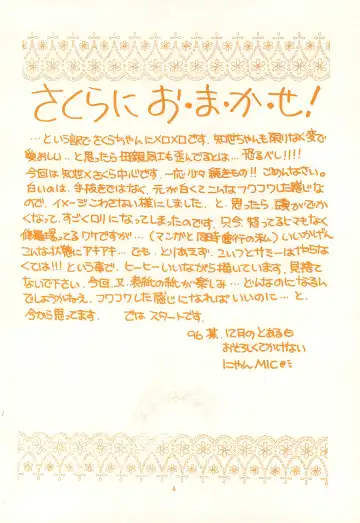 さくらにお・ま・か・せ!
…という訳でさくらちゃんにメロメロです。知世ちゃんも限りなく変で
愛おしい…と思ったら母親同士も歪んでるとは…恐るべし!!!!
今回は知世×さくら中心です。一応少々続きもの!!ごめんなさい。
白いのは、手抜きではなく、元が白くてこんなフワフワした感じな
ので、イメージこわさない様にしました。と、思ったら、頭がでか
くなって、すごくロリになってしまったのです。只今、怒ってるヒマもなく
修羅場ってるワケですが…(マンガと同時進行の為)いいかげん
こんな状態にアキアキ…でも、とりあえず、コイツとサミーはやらな
くては!!!という事で、ヒーヒーいいながら描いています。見捨て
ないで下さい。今回、又、表紙の紙が楽しみ…どんなのになるん
でしょうかねえ。フワフワした感じになればいいのに…と。
今から思ってます。 では スタートです。
96 葉. 12月のとある日
おそろしくてかけない
にゃんMICE
4